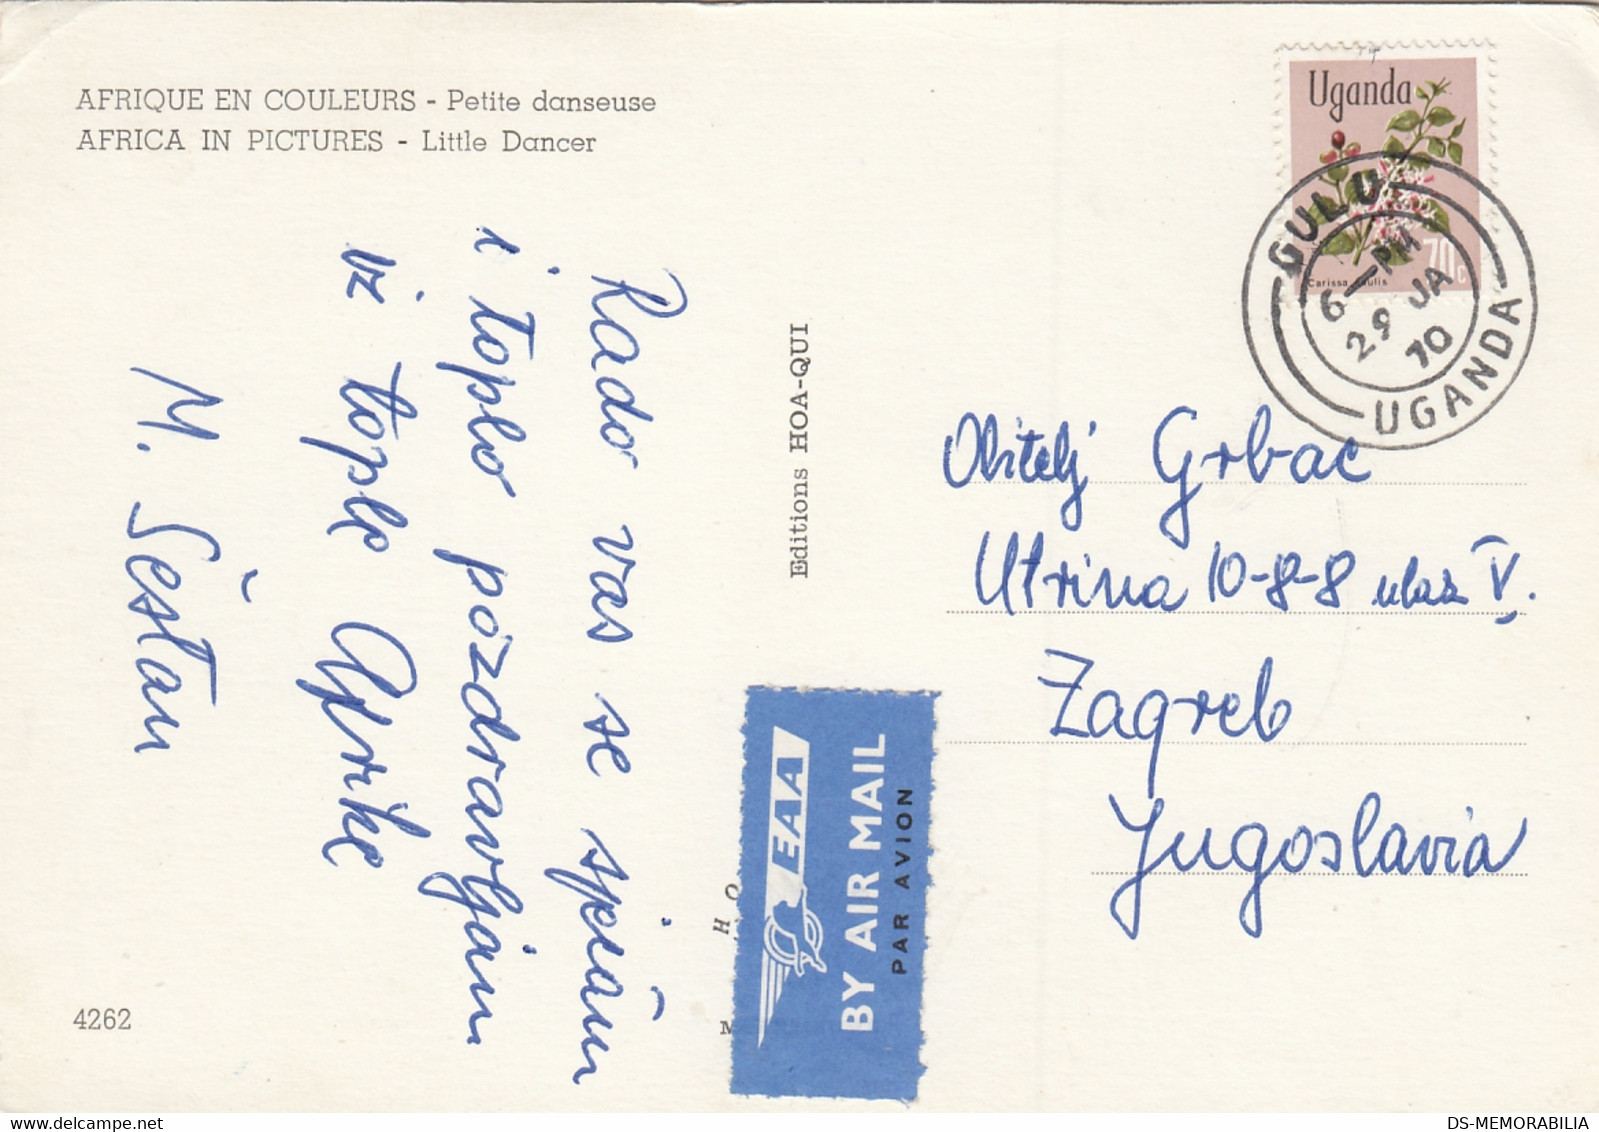 AFRIQUE EN COULEURS - Petite danseuse
AFRICA IN PICTURES - Little Dancer
Rado vas se sjećam
i toplo pozdravljam
iz tople Afrike
M. Šestan
4262
Editions HOA-QUI
EAA
BY AIR MAIL
PAR AVION
Uganda
70c
GULU
6-PM
29 JA
70
UGANDA
Obitelj Grbac
Utrina 10-8-8 ulaz V.
Zagreb
Jugoslavia
DS-MEMORABILIA